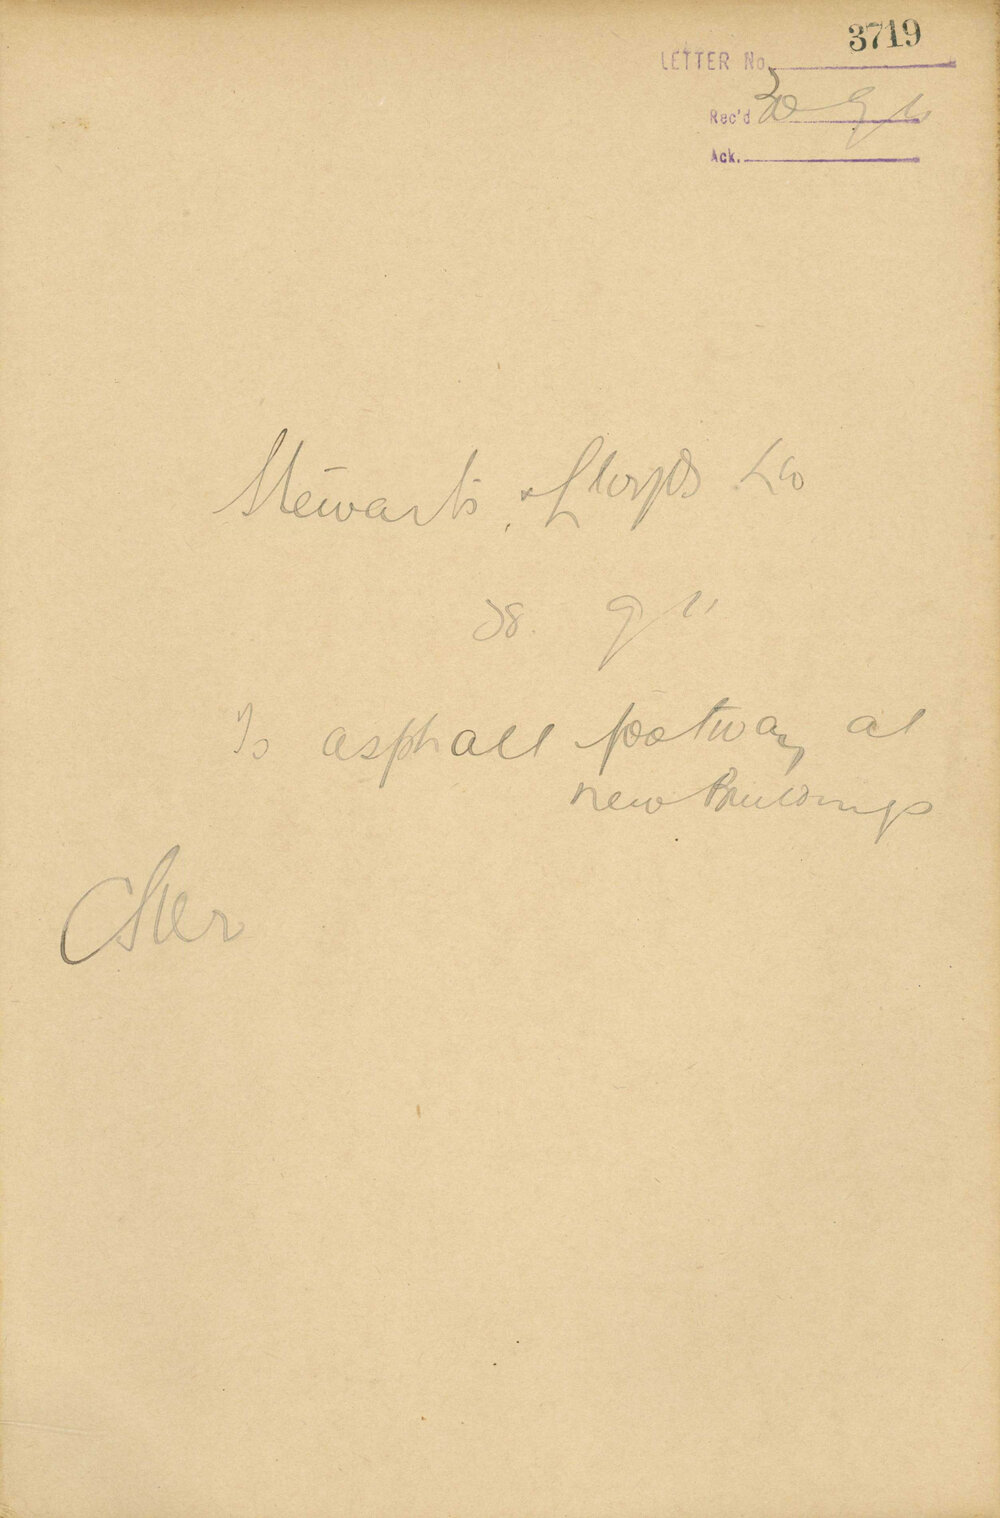 LETTER No. 3719
Rec'd 30 9
Ack.
Stewarts & Lloyds Ld
28. 9 11
To asphalt footway at
new Buildings